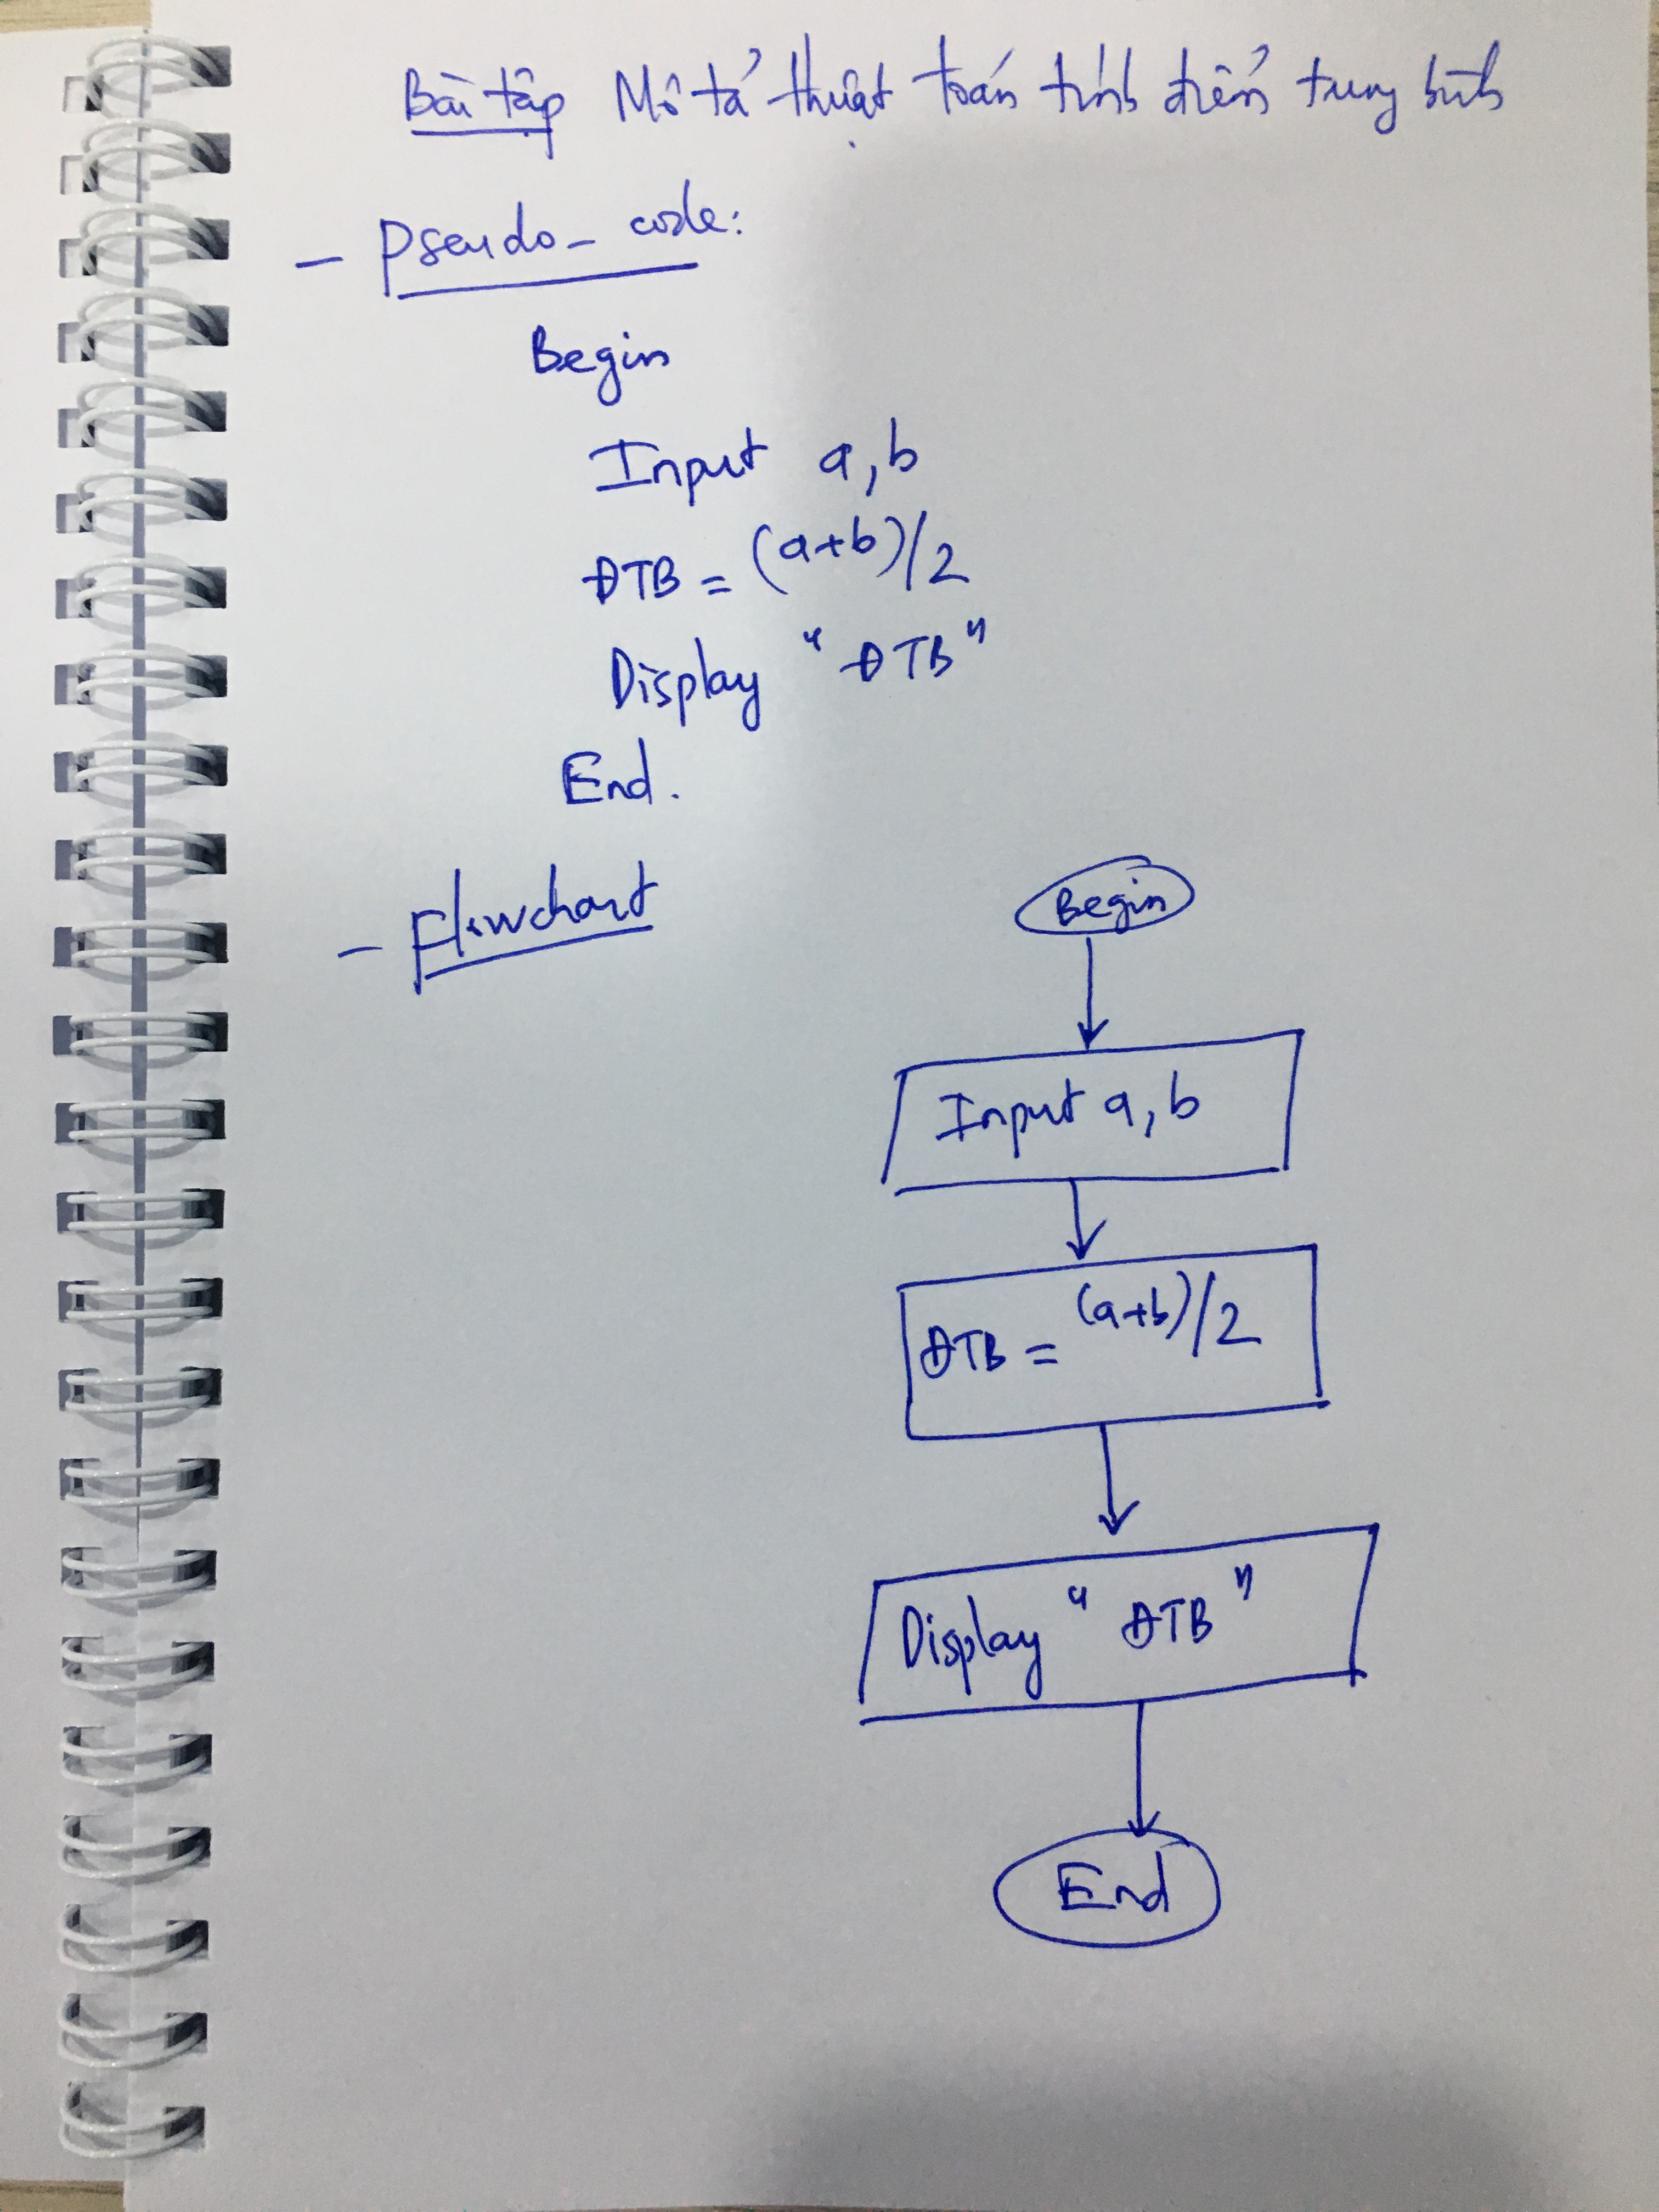 Bài tập Mô tả thuật toán tính điểm trung bình
- Pseudo - code:
Begin
Input a, b
ĐTB = (a+b)/2
Display "ĐTB"
End.
- Flowchart
Begin
Input a, b
ĐTB = (a+b)/2
Display "ĐTB"
End